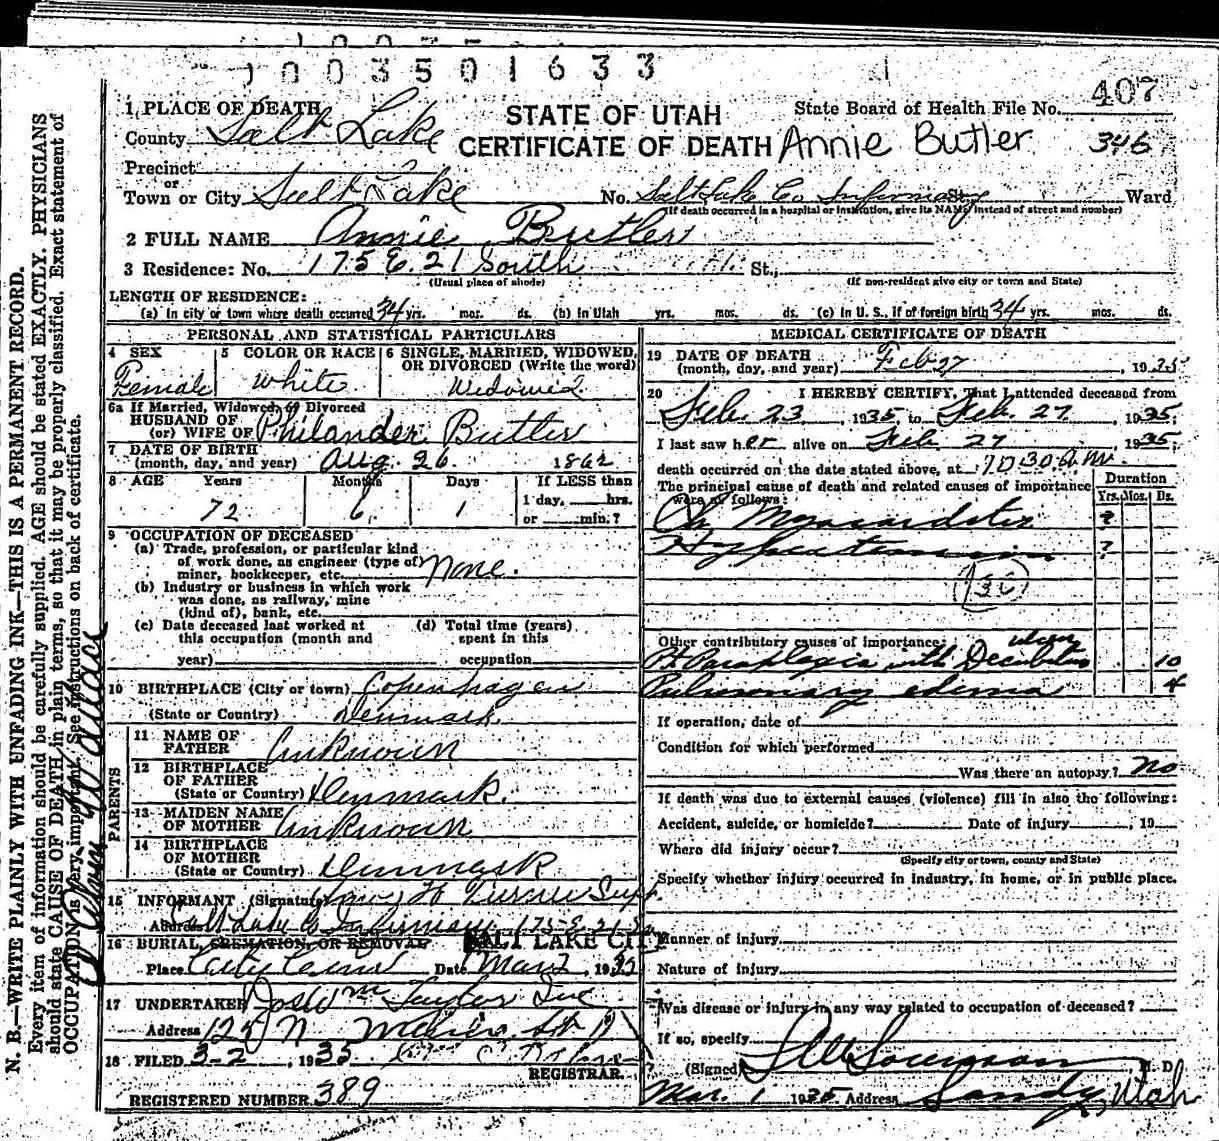 1003501633
1 PLACE OF DEATH
County Salt Lake
STATE OF UTAH
CERTIFICATE OF DEATH Annie Butler
State Board of Health File No. 407
346
Precinct
or
Town or City Salt Lake No. Salt Lake Co Infirmary St. Ward
(If death occurred in a hospital or institution, give its NAME instead of street and number)
2 FULL NAME Annie Butler
3 Residence: No. 175 E. 21 South St.,
(Usual place of abode) (If non-resident give city or town and State)
LENGTH OF RESIDENCE:
(a) In city or town where death occurred 34 yrs. mos. ds. (b) In Utah yrs. mos. ds. (c) In U. S., if of foreign birth 34 yrs. mos. ds.
PERSONAL AND STATISTICAL PARTICULARS
4 SEX Female
5 COLOR OR RACE White
6 SINGLE, MARRIED, WIDOWED, OR DIVORCED (Write the word)
Widowed
6a If Married, Widowed, or Divorced
HUSBAND OF
(or) WIFE OF Philander Butler
7 DATE OF BIRTH
(month, day, and year) Aug. 26 1862
8 AGE Years Months Days If LESS than
72 6 1 1 day, hrs.
or min.?
9 OCCUPATION OF DECEASED
(a) Trade, profession, or particular kind
of work done, as engineer (type of) None.
miner, bookkeeper, etc.
(b) Industry or business in which work
was done, as railway, mine
(kind of), bank, etc.
(c) Date deceased last worked at (d) Total time (years)
this occupation (month and spent in this
year) occupation
10 BIRTHPLACE (City or town) Copenhagen
(State or Country) Denmark.
PARENTS
11 NAME OF
FATHER Unknown
12 BIRTHPLACE
OF FATHER
(State or Country) Denmark.
13 MAIDEN NAME
OF MOTHER Unknown
14 BIRTHPLACE
OF MOTHER
(State or Country) Denmark
15 INFORMANT (Signature) H Supt
Address Salt Lake Co Infirmary 175 E. 21 S
16 BURIAL, CREMATION, OR REMOVAL SALT LAKE CITY
Place City Cem Date Mar 2, 1935
17 UNDERTAKER Jos Wm Taylor Inc
Address 125 N
18 FILED 3-2, 1935
REGISTRAR.
REGISTERED NUMBER 389
MEDICAL CERTIFICATE OF DEATH
19 DATE OF DEATH
(month, day, and year) Feb 27, 1935
20 I HEREBY CERTIFY, That I attended deceased from
Feb. 23, 1935, to Feb. 27, 1935,
I last saw her alive on Feb 27 1935,
death occurred on the date stated above, at 10 30 a m.
The principal cause of death and related causes of importance Duration
were as follows: Yrs. Mos. Ds.
Ch Myocarditis ?
Hypertension ?
Other contributory causes of importance:
Paraplegia with Decubitus ulcers 10
Pulmonary edema 4
If operation, date of
Condition for which performed
Was there an autopsy? No
If death was due to external causes (violence) fill in also the following:
Accident, suicide, or homicide? Date of injury, 19
Where did injury occur?
(Specify city or town, county and State)
Specify whether injury occurred in industry, in home, or in public place.
Manner of injury
Nature of injury
Was disease or injury in any way related to occupation of deceased?
If so, specify
(Signed) Sorenson M. D.
Mar. 1 1935 Address Sandy, Utah
N. B.—WRITE PLAINLY WITH UNFADING INK—THIS IS A PERMANENT RECORD.
Every item of information should be carefully supplied. AGE should be stated EXACTLY. PHYSICIANS
should state CAUSE OF DEATH in plain terms, so that it may be properly classified. Exact statement of
OCCUPATION is very important. See instructions on back of certificate.